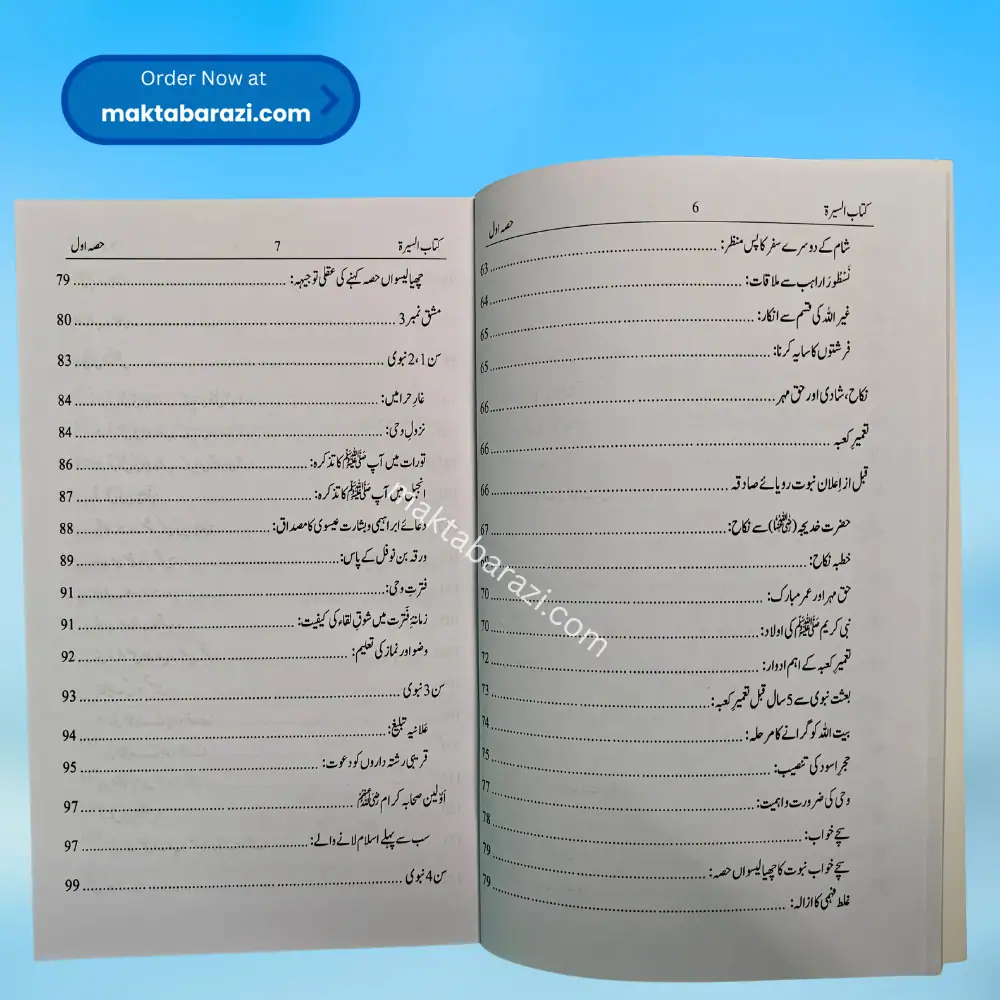 Order Now at
maktabarazi.com
کتاب السیرۃ 6 حصہ اول
شام کے دوسرے سفر کا پس منظر: 63
نَسْطُورَا راہب سے ملاقات: 64
غیر اللہ کی قسم سے انکار: 65
فرشتوں کا سایہ کرنا: 65
نکاح، شادی اور حق مہر 66
تعمیرِ کعبہ 66
قبل از اعلان نبوت رویائے صادقہ 66
حضرت خدیجہ (رضی اللہ عنہا) سے نکاح: 67
خطبہ نکاح:
حق مہر اور عمر مبارک: 70
نبی کریم صلی اللہ علیہ وسلم کی اولاد: 70
تعمیرِ کعبہ کے اہم ادوار: 72
بعثت نبوی سے 5 سال قبل تعمیرِ کعبہ: 73
بیت اللہ کو گرانے کا مرحلہ: 74
حجر اسود کی تنصیب: 75
وحی کی ضرورت و اہمیت: 77
سچے خواب: 78
سچے خواب نبوت کا چھیالیسواں حصہ: 79
غلط فہمی کا ازالہ: 79
کتاب السیرۃ 7 حصہ اول
چھیالیسواں حصہ کہنے کی عقلی توجیہہ: 79
مشق نمبر 3 80
سن 1، 2 نبوی 83
غارِ حرا میں: 84
نزولِ وحی: 84
تورات میں آپ صلی اللہ علیہ وسلم کا تذکرہ: 86
انجیل میں آپ صلی اللہ علیہ وسلم کا تذکرہ: 87
دعائے ابراہیمی و بشارت عیسوی کا مصداق: 88
ورقہ بن نوفل کے پاس: 89
فترتِ وحی: 91
زمانۂ فَترت میں شوقِ لقاء کی کیفیت: 91
وضو اور نماز کی تعلیم: 92
سن 3 نبوی 93
عَلانیہ تبلیغ: 94
قریبی رشتہ داروں کو دعوت: 95
اوّلین صحابہ کرام رضی اللہ عنہم 97
سب سے پہلے اسلام لانے والے: 97
سن 4 نبوی 99
maktabarazi.com